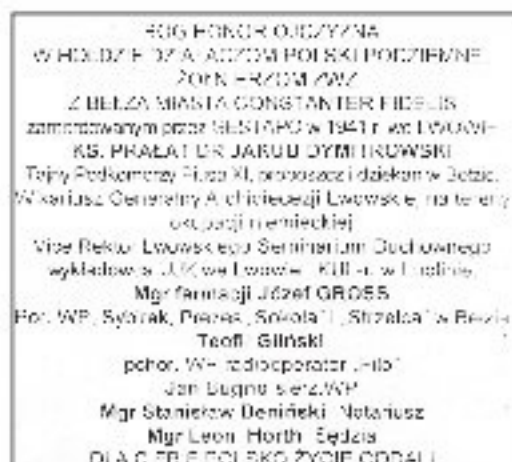 BÓG HONOR OJCZYZNA
W HOŁDZIE DZIAŁACZOM POLSKI PODZIEMNEJ
ŻOŁNIERZOM ZWZ
Z BEŁZA MIASTA CONSTANTER FIDELIS
zamordowanym przez GESTAPO w 1941 r. we LWOWIE
KS. PRAŁAT DR JAKUB DYMITROWSKI
Tajny Podkomorzy Piusa XI, proboszcz i dziekan w Bełzie,
Wikariusz Generalny Archidiecezji Lwowskiej na tereny
okupacji niemieckiej
Vice Rektor Lwowskiego Seminarium Duchownego
wykładowca UJK we Lwowie i KUL-u w Lublinie,
Mgr farmacji Józef GROSS
Por. WP, Sybirak, Prezes "Sokoła" i "Strzelca" w Bełzie
Teofil Gliński
pchor. WP radiooperator
Jan Bugno sierż. WP
Mgr Stanisław Deniński Notariusz
Mgr Leon Horth Sędzia
DLA CIEBIE POLSKO ŻYCIE ODDALI